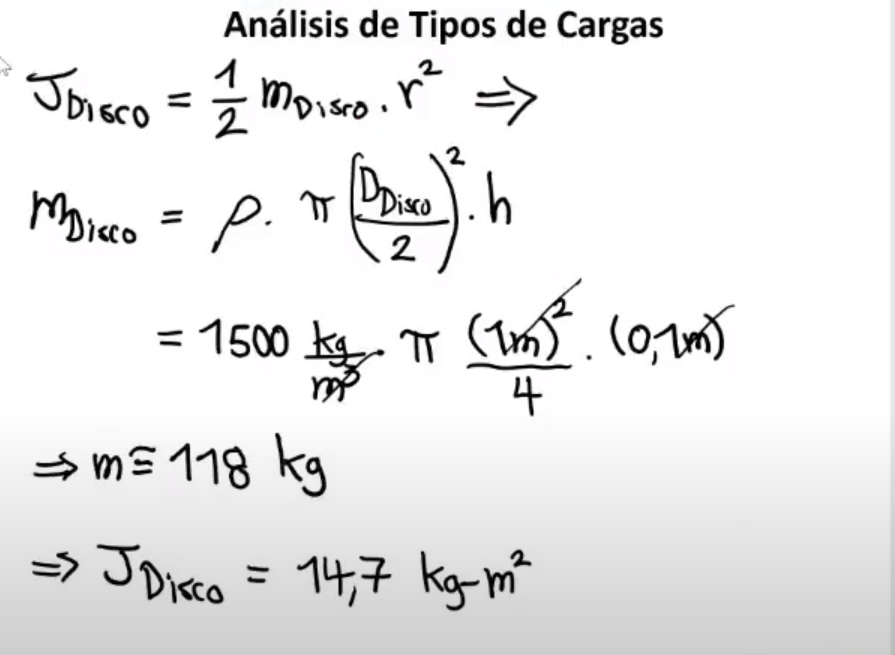 Análisis de Tipos de Cargas
J_Disco = 1/2 m_Disco . r² ⇒
m_Disco = ρ. π (D_Disco/2)² . h
= 1500 kg/m³ . π (1m)²/4 . (0,1m)
⇒ m ≅ 118 kg
⇒ J_Disco = 14,7 kg-m²